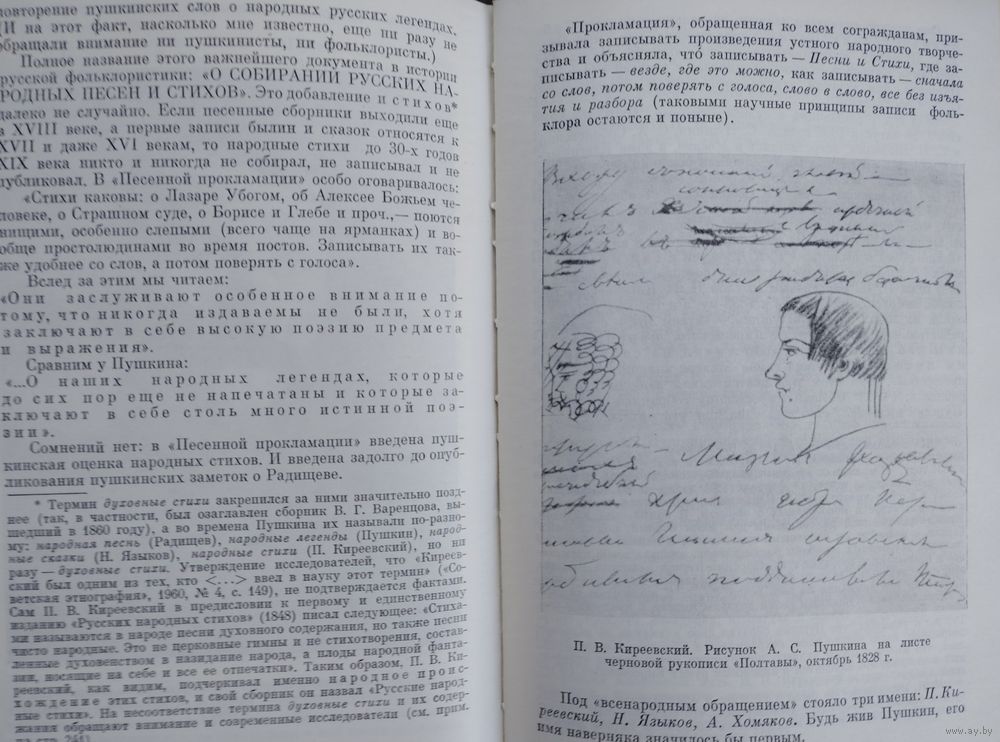 повторение пушкинских слов о народных русских легендах.
(И на этот факт, насколько мне известно, еще ни разу не
обращали внимание ни пушкинисты, ни фольклористы.)
Полное название этого важнейшего документа в истории
русской фольклористики: «О СОБИРАНИИ РУССКИХ НА-
РОДНЫХ ПЕСЕН И СТИХОВ». Это добавление и стихов*
далеко не случайно. Если песенные сборники выходили еще
в XVIII веке, а первые записи былин и сказок относятся к
XVII и даже XVI векам, то народные стихи до 30-х годов
XIX века никто и никогда не собирал, не записывал и не
публиковал. В «Песенной прокламации» особо оговаривалось:
«Стихи каковы: о Лазаре Убогом, об Алексее Божьем че-
ловеке, о Страшном суде, о Борисе и Глебе и проч.,— поются
нищими, особенно слепыми (всего чаще на ярманках) и во-
обще простолюдинами во время постов. Записывать их так-
же удобнее со слов, а потом поверять с голоса».
Вслед за этим мы читаем:
«Они заслуживают особенное внимание по-
тому, что никогда издаваемы не были, хотя
заключают в себе высокую поэзию предмета
и выражения».
Сравним у Пушкина:
«...О наших народных легендах, которые
до сих пор еще не напечатаны и которые за-
ключают в себе столь много истинной поэ-
зии».
Сомнений нет: в «Песенной прокламации» введена пуш-
кинская оценка народных стихов. И введена задолго до опуб-
ликования пушкинских заметок о Радищеве.
* Термин духовные стихи закрепился за ними значительно позд-
нее (так, в частности, был озаглавлен сборник В. Г. Варенцова, вы-
шедший в 1860 году), а во времена Пушкина их называли по-разно-
му: народная песнь (Радищев), народные легенды (Пушкин), народ-
ные сказки (Н. Языков), народные стихи (П. Киреевский), но ни
разу — духовные стихи. Утверждение исследователей, что «Киреев-
ский был одним из тех, кто <...> ввел в науку этот термин» («Со-
ветская этнография», 1960, № 4, с. 149), не подтверждается фактами.
Сам П. В. Киреевский в предисловии к первому и единственному
изданию «Русских народных стихов» (1848) писал следующее: «Стиха-
ми называются в народе песни духовного содержания, но также песни
чисто народные. Это не церковные гимны и не стихотворения, состав-
ленные духовенством в назидание народа, а плоды народной фанта-
зии, носящие на себе и все ее отпечатки». Таким образом, П. В. Ки-
реевский, как видим, подчеркивал именно народное проис-
хождение этих стихов, и свой сборник он назвал «Русские народ-
ные стихи». На несоответствие термина духовные стихи и их содер-
жания обращают внимание и современные исследователи (см. прим.
на стр. 241)
«Прокламация», обращенная ко всем согражданам, при-
зывала записывать произведения устного народного творче-
ства и объясняла, что́ записывать — Песни и Стихи, где за-
писывать — везде, где это можно, как записывать — сначала
со слов, потом поверять с голоса, слово в слово, все без изъя-
тия и разбора (таковыми научные принципы записи фоль-
клора остаются и поныне).
П. В. Киреевский. Рисунок А. С. Пушкина на листе
черновой рукописи «Полтавы», октябрь 1828 г.
Под «всенародным обращением» стояло три имени: П. Ки-
реевский, Н. Языков, А. Хомяков. Будь жив Пушкин, его
имя наверняка значилось бы первым.
www.ay.by